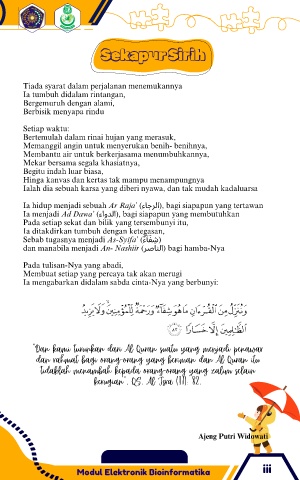 Sekapur Sirih
Tiada syarat dalam perjalanan menemukannya
Ia tumbuh didalam rintangan,
Bergemuruh dengan alami,
Berbisik menyapa rindu
Setiap waktu:
Bertemulah dalam rinai hujan yang merasuk,
Memanggil angin untuk menyerukan benih- benihnya,
Membantu air untuk berkerjasama menumbuhkannya,
Mekar bersama segala khasiatnya,
Begitu indah luar biasa,
Hinga kanvas dan kertas tak mampu menampungnya
Ialah dia sebuah karsa yang diberi nyawa, dan tak mudah kadaluarsa
Ia hidup menjadi sebuah Ar Raja' (الرجاء), bagi siapapun yang tertawan
Ia menjadi Ad Dawa' (الدواء), bagi siapapun yang membutuhkan
Pada setiap sekat dan bilik yang tersembunyi itu,
Ia ditakdirkan tumbuh dengan ketegasan,
Sebab tugasnya menjadi As-Syifa' (شِفَاءٌ)
dan manabila menjadi An- Nashiir (الناصر) bagi hamba-Nya
Pada tulisan-Nya yang abadi,
Membuat setiap yang percaya tak akan merugi
Ia mengabarkan didalam sabda cinta-Nya yang berbunyi:
وَنُنَزِّلُ مِنَ الْقُرْءَانِ مَا هُوَ شِفَاءٌ وَرَحْمَةٌ لِّلْمُؤْمِنِينَ وَلَا يَزِيدُ
الظَّالِمِينَ إِلَّا خَسَارًا ٨٢
"Dan kami turunkan dari Al Quran suatu yang menjadi penawar
dan rahmat bagi orang-orang yang beriman dan Al Quran itu
tidaklah menambah kepada orang-orang yang zalim selain
kerugian". QS. Al Isra (17): 82.
Ajeng Putri Widowati
Modul Elektronik Bioinformatika
iii